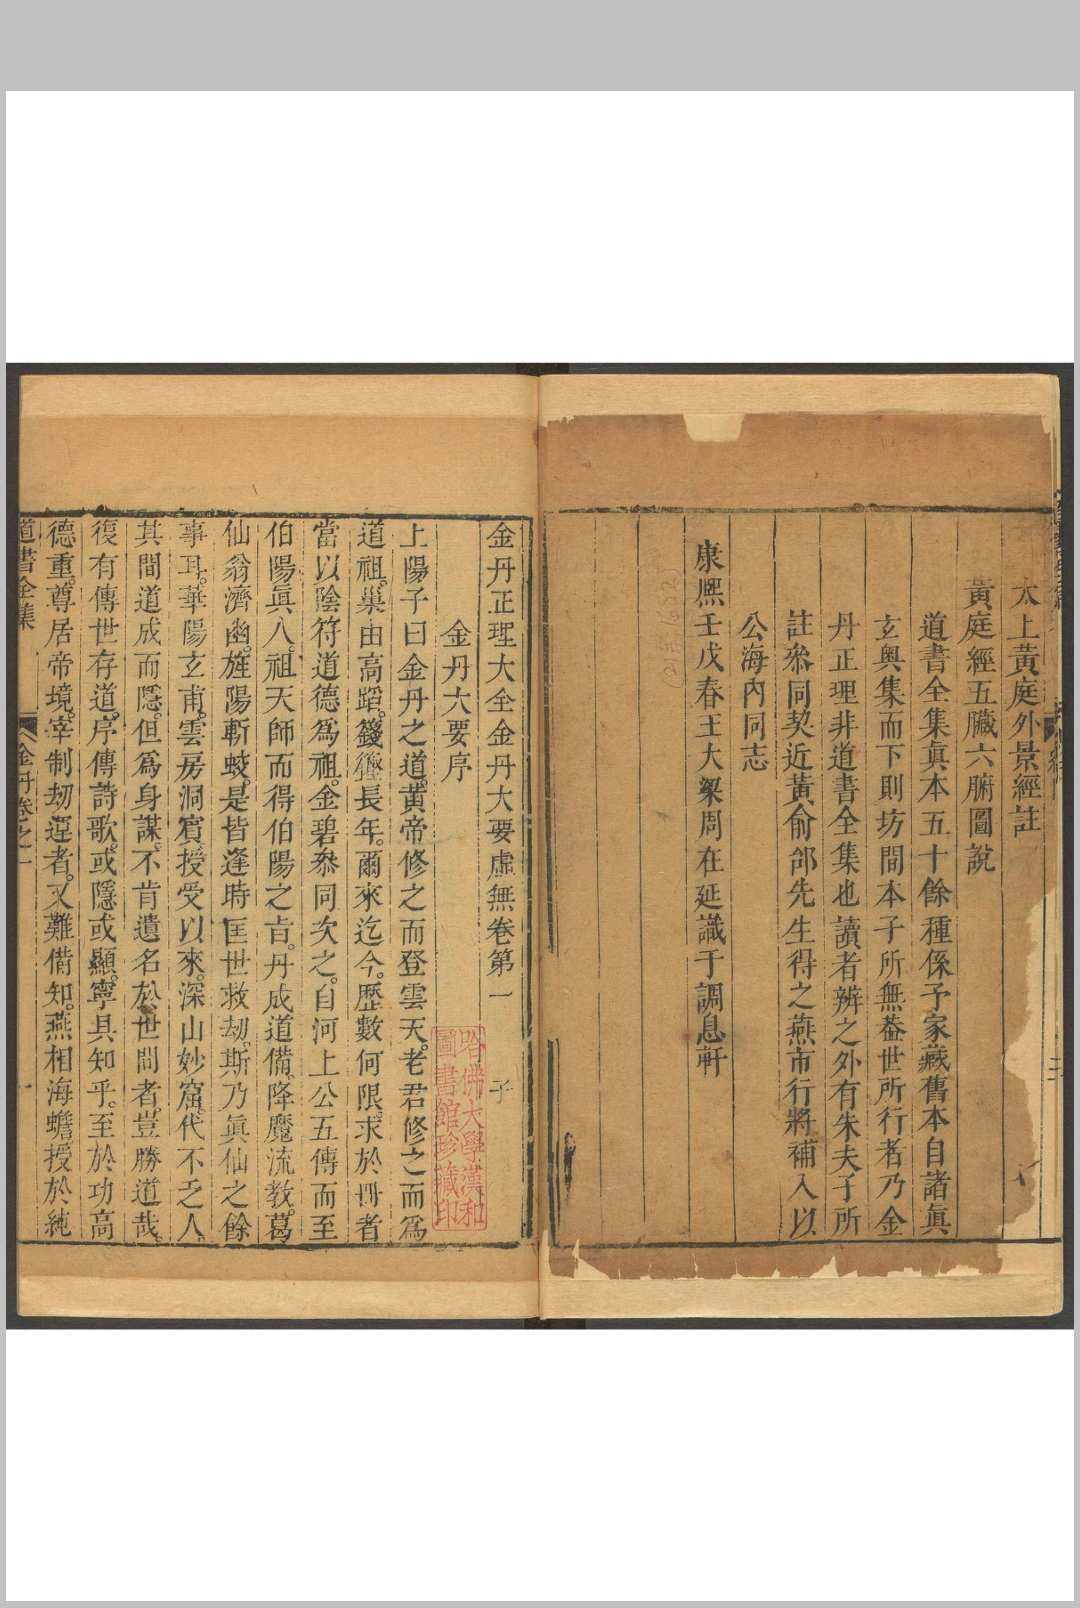 太上黃庭外景經註
黃庭經五臟六腑圖說
道書全集眞本五十餘種係予家藏舊本自諸眞
玄奧集而下則坊間本子所無葢世所行者乃金
丹正理非道書全集也讀者辨之外有朱夫子所
註叅同契近黃俞邰先生得之燕市行將補入以
公海內同志
康熙壬戌春王大梁周在延識于調息軒
金丹正理大全金丹大要虛無卷第一
金丹大要序
上陽子曰金丹之道。黃帝修之而登雲天。老君修之而爲
道祖。巢由高蹈。籛鏗長年。爾來迄今。歷數何限。求於冊者
當以陰符道德爲祖。金碧叅同次之。自河上公五傳而至
伯陽眞人。祖天師而得伯陽之旨。丹成道備。降魔流教。葛
仙翁濟幽。旌陽斬蛟。是皆逢時匡世救劫。斯乃眞仙之餘
事耳。華陽玄甫。雲房洞賓授受以來。深山妙窟。代不乏人
其間道成而隱。但爲身謀。不肯遺名於世間者。豈勝道哉。
復有傳世存道。序傳詩歌。或隱或顯。寧具知乎。至於功高
德重。尊居帝境。宰制劫運者。又難備知。燕相海蟾授於純
道書全集
金丹卷之一
一
哈佛大學漢和
圖書館珍藏印